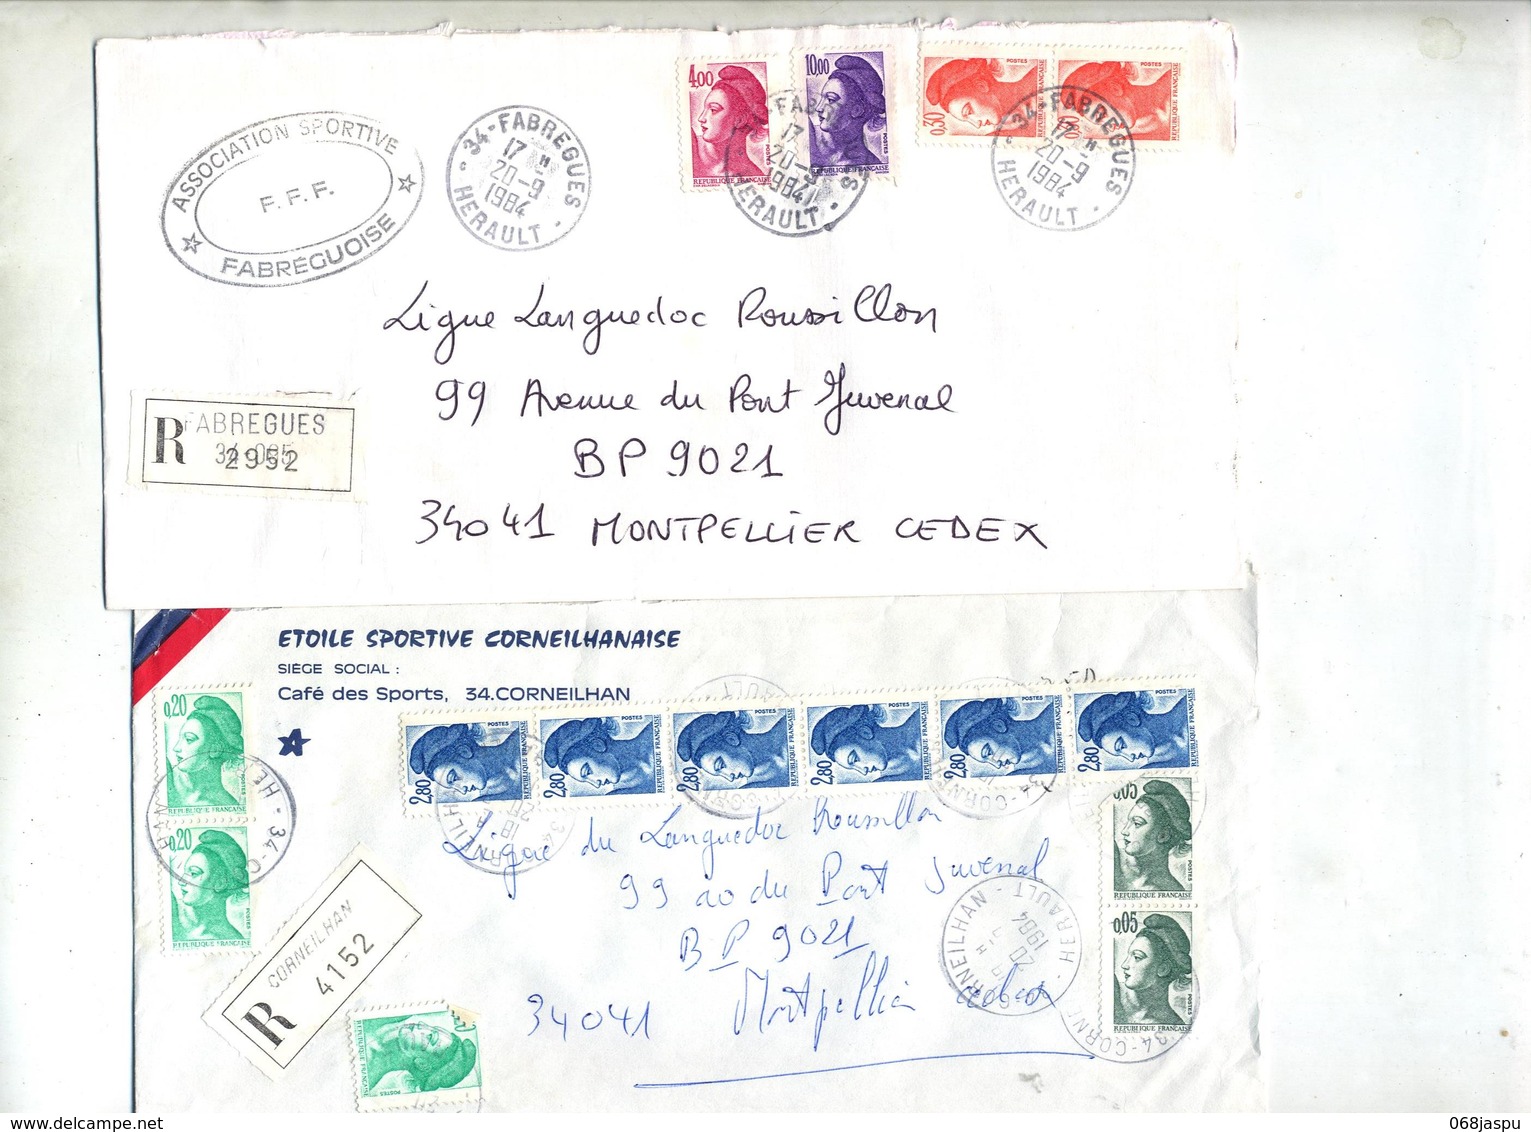 4.00
POSTES
REPUBLIQUE FRANÇAISE
10.00
POSTES
REPUBLIQUE FRANÇAISE
0.30
POSTES
REPUBLIQUE FRANÇAISE
POSTES
REPUBLIQUE FRANÇAISE
ASSOCIATION SPORTIVE
F. F. F.
FABRÉGUOISE
34-FABREGUES
17 H
20-9
1984
HERAULT
17
20-9
1984
34-FABREGUES
17 H
20-9
1984
HERAULT
Ligue Languedoc Roussillon
99 Avenue du Pont Juvenal
BP 9021
34041 MONTPELLIER CEDEX
R FABREGUES
2952
ETOILE SPORTIVE CORNEILHANAISE
SIÈGE SOCIAL :
Café des Sports, 34.CORNEILHAN
0,20
POSTES
REPUBLIQUE FRANÇAISE
0,20
POSTES
REPUBLIQUE FRANÇAISE
2,80
POSTES
REPUBLIQUE FRANÇAISE
2,80
POSTES
REPUBLIQUE FRANÇAISE
2,80
POSTES
REPUBLIQUE FRANÇAISE
2,80
POSTES
REPUBLIQUE FRANÇAISE
2,80
POSTES
REPUBLIQUE FRANÇAISE
2,80
POSTES
REPUBLIQUE FRANÇAISE
0,05
POSTES
REPUBLIQUE FRANÇAISE
0,05
POSTES
REPUBLIQUE FRANÇAISE
Ligue du Languedoc Roussillon
99 du Pont Juvenal
BP 9021
34041 Montpellier cedex
R CORNEILHAN
4152
HERAULT
20
1984
34-CORNEILHAN
POSTES
REPUBLIQUE FRANÇAISE
068jaspu